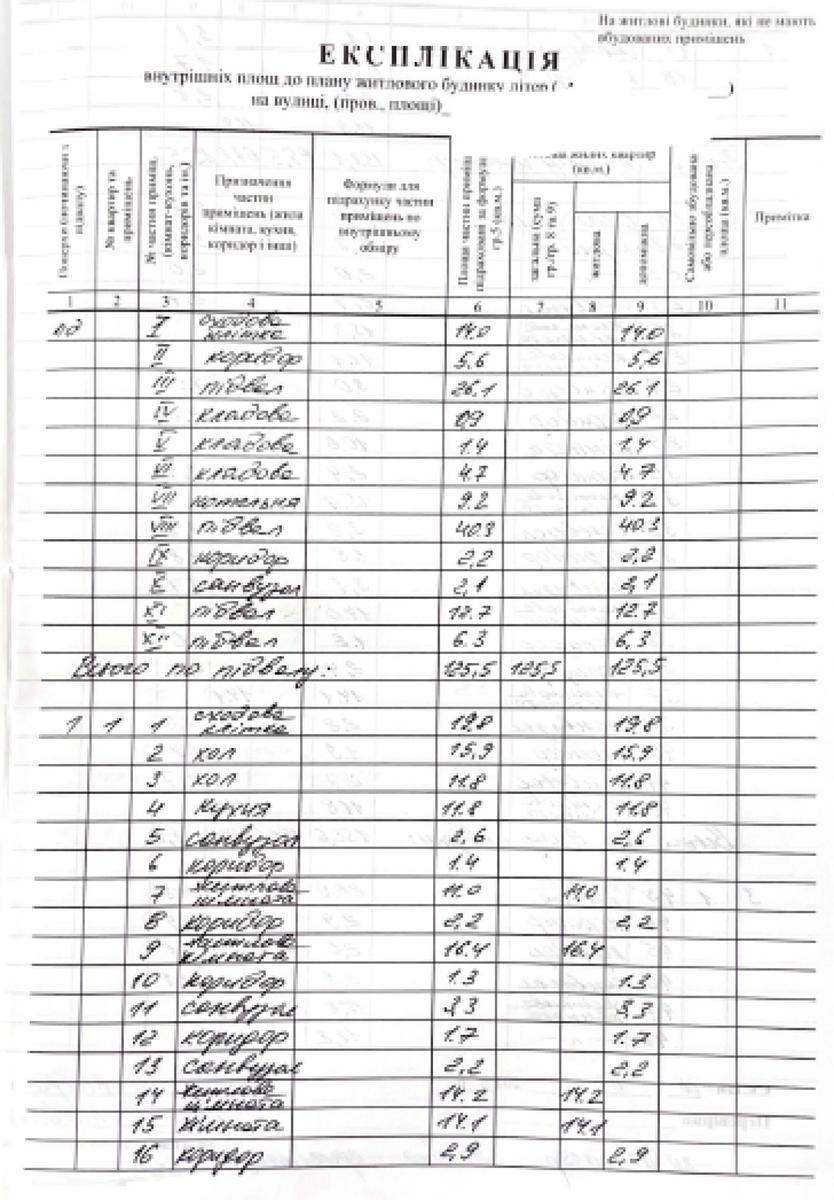 На житлові будинки, які не мають
вбудованих приміщень
ЕКСПЛІКАЦІЯ
внутрішніх площ до плану житлового будинку літер (
на вулиці, (пров., площі)
Поверхи (починаючи з підвалу)
№ квартир та приміщень
№ частин приміщ. (кімнат-кухонь, коридорів та ін.)
Призначення частин приміщень (жила кімната, кухня, коридор і інші)
Формули для підрахунку частин приміщень по внутрішньому обміру
Площа частин приміщ. підрахована за формулою гр.5 (кв.м.)
жилих квартир (кв.м.)
загальні (сума гр./гр. 8 та 9)
житлова
допоміжна
Самовільно збудована або переобладнана площа (кв.м.)
Примітка
1 2 3 4 5 6 7 8 9 10 11
пд I сходова клітка 14.0 14.0
II коридор 5,6 5,6
III підвал 26,1 26.1
IV кладова 0,9 0,9
V кладова 1.4 1.4
VI кладова 4.7 4.7
VII котельня 9.2 9.2
VIII підвал 40.3 40.3
IX коридор 2,2 2,2
X санвузол 2,1 2,1
XI підвал 12.7 12.7
XII підвал 6.3 6,3
Всього по підвалу: 125,5 125,5 125,5
1 1 1 сходова клітка 19.8 19.8
2 хол 15,9 15,9
3 хол 11.8 11.8
4 кухня 11.8 11.8
5 санвузол 2,6 2,6
6 коридор 1.4 1.4
7 житлова кімната 11.0 11.0
8 коридор 2,2 2,2
9 житлова кімната 16.4 16.4
10 коридор 1.3 1.3
11 санвузол 3,3 3,3
12 коридор 1.7 1.7
13 санвузол 2,2 2,2
14 житлова кімната 14.2 14.2
15 кімната 14.1 14.1
16 коридор 2,9 2,9